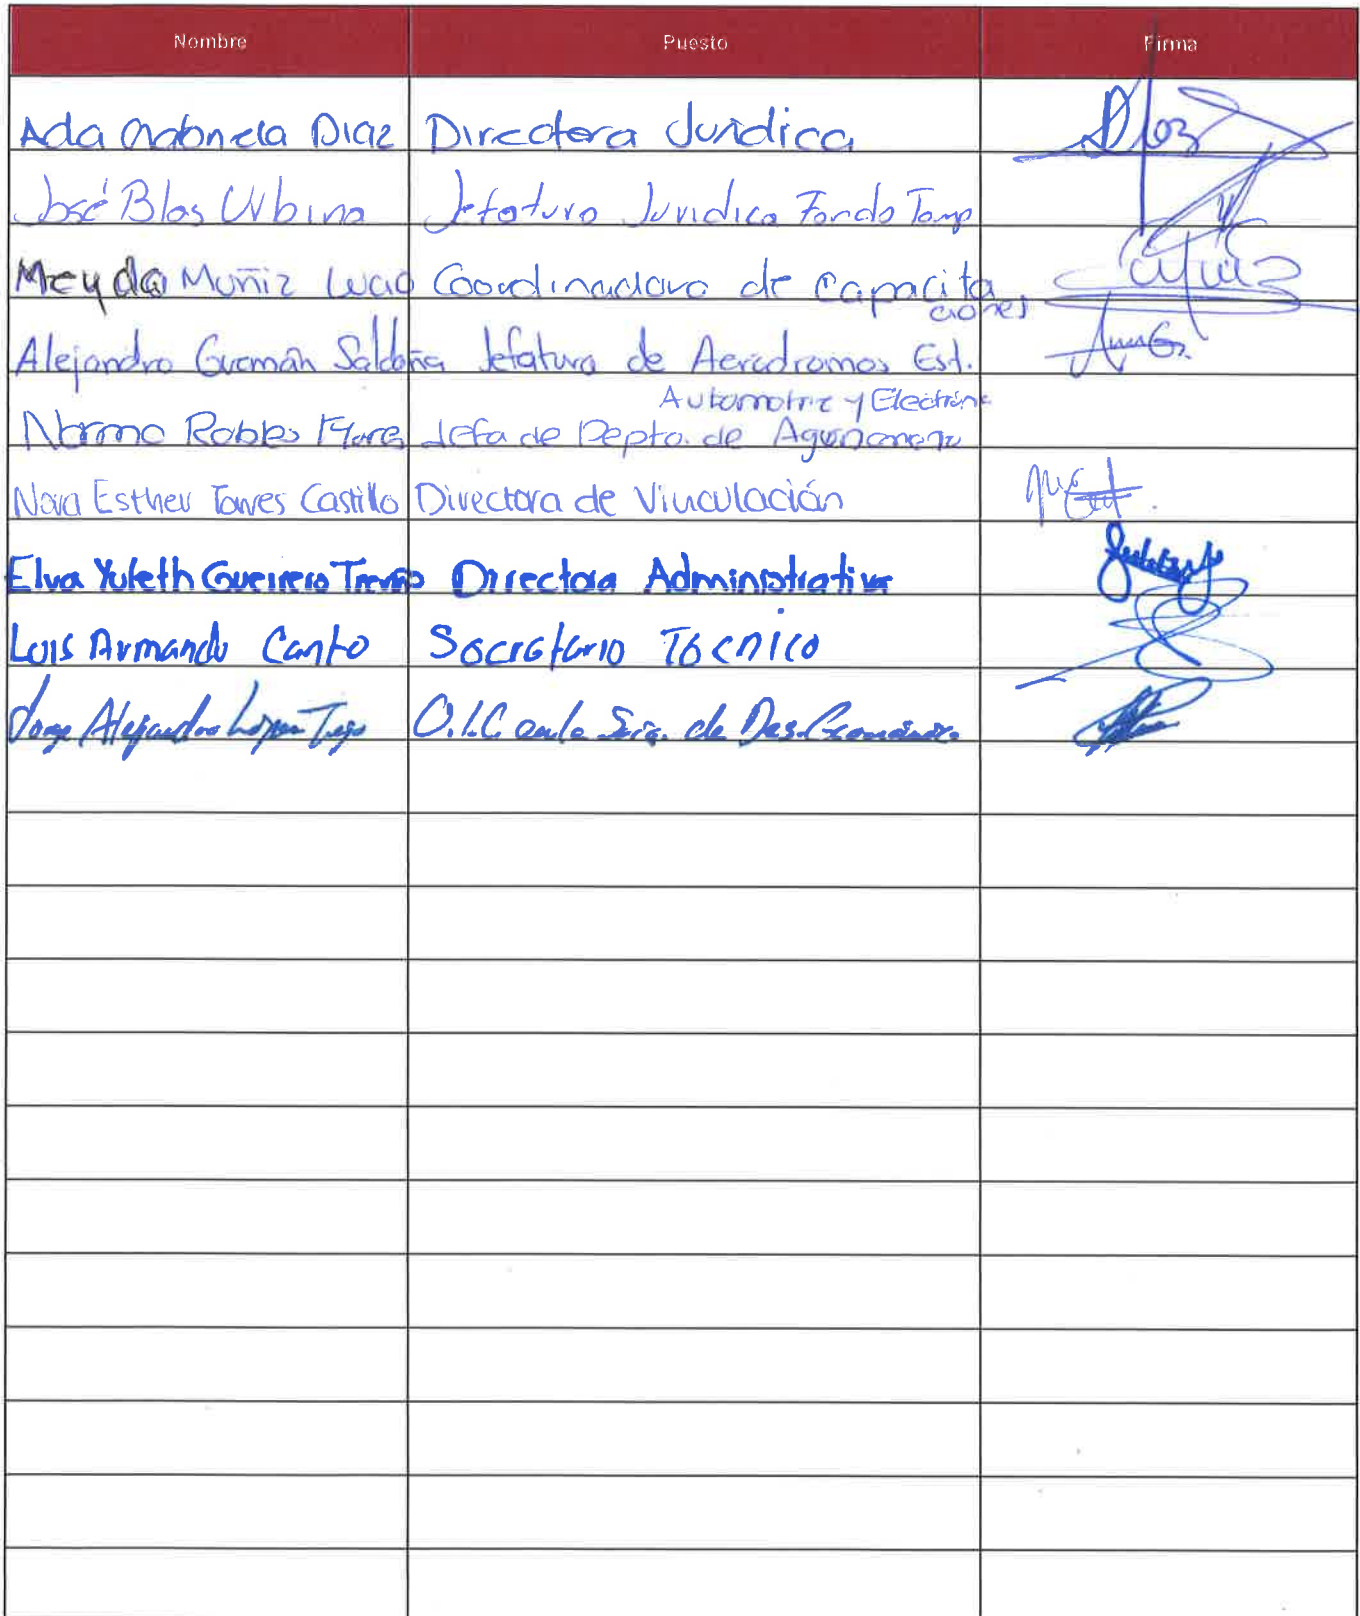 Nombre Puesto Firma
Ada Gabriela Diaz Directora Juridica
José Blas Urbina Jefatura Juridica Fondo Tamp
Meyda Muñiz Lucio Coordinadora de Capacita
ciones
Alejandro Guzmán Saldaña Jefatura de Aerodromos Est.
Automotriz y Electrón
Norma Robles Flores Jefa de Depto. de
Nora Esther Torres Castillo Directora de Vinculación
Elva Yuleth Guerrero Treviño Directora Administrativa
Luis Armando Canto Secretario Técnico
Jorge Alejandro López Trejo O.I.C. en la Sría. de Des. Económico